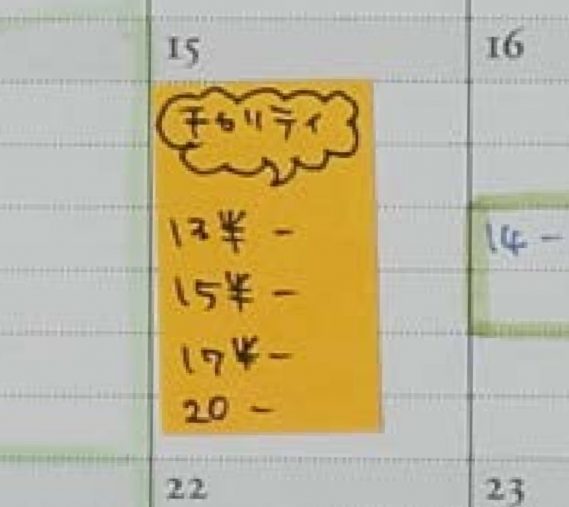 15
16
チャリティ
13半 -
14 -
15半 -
17半 -
20 -
22
23